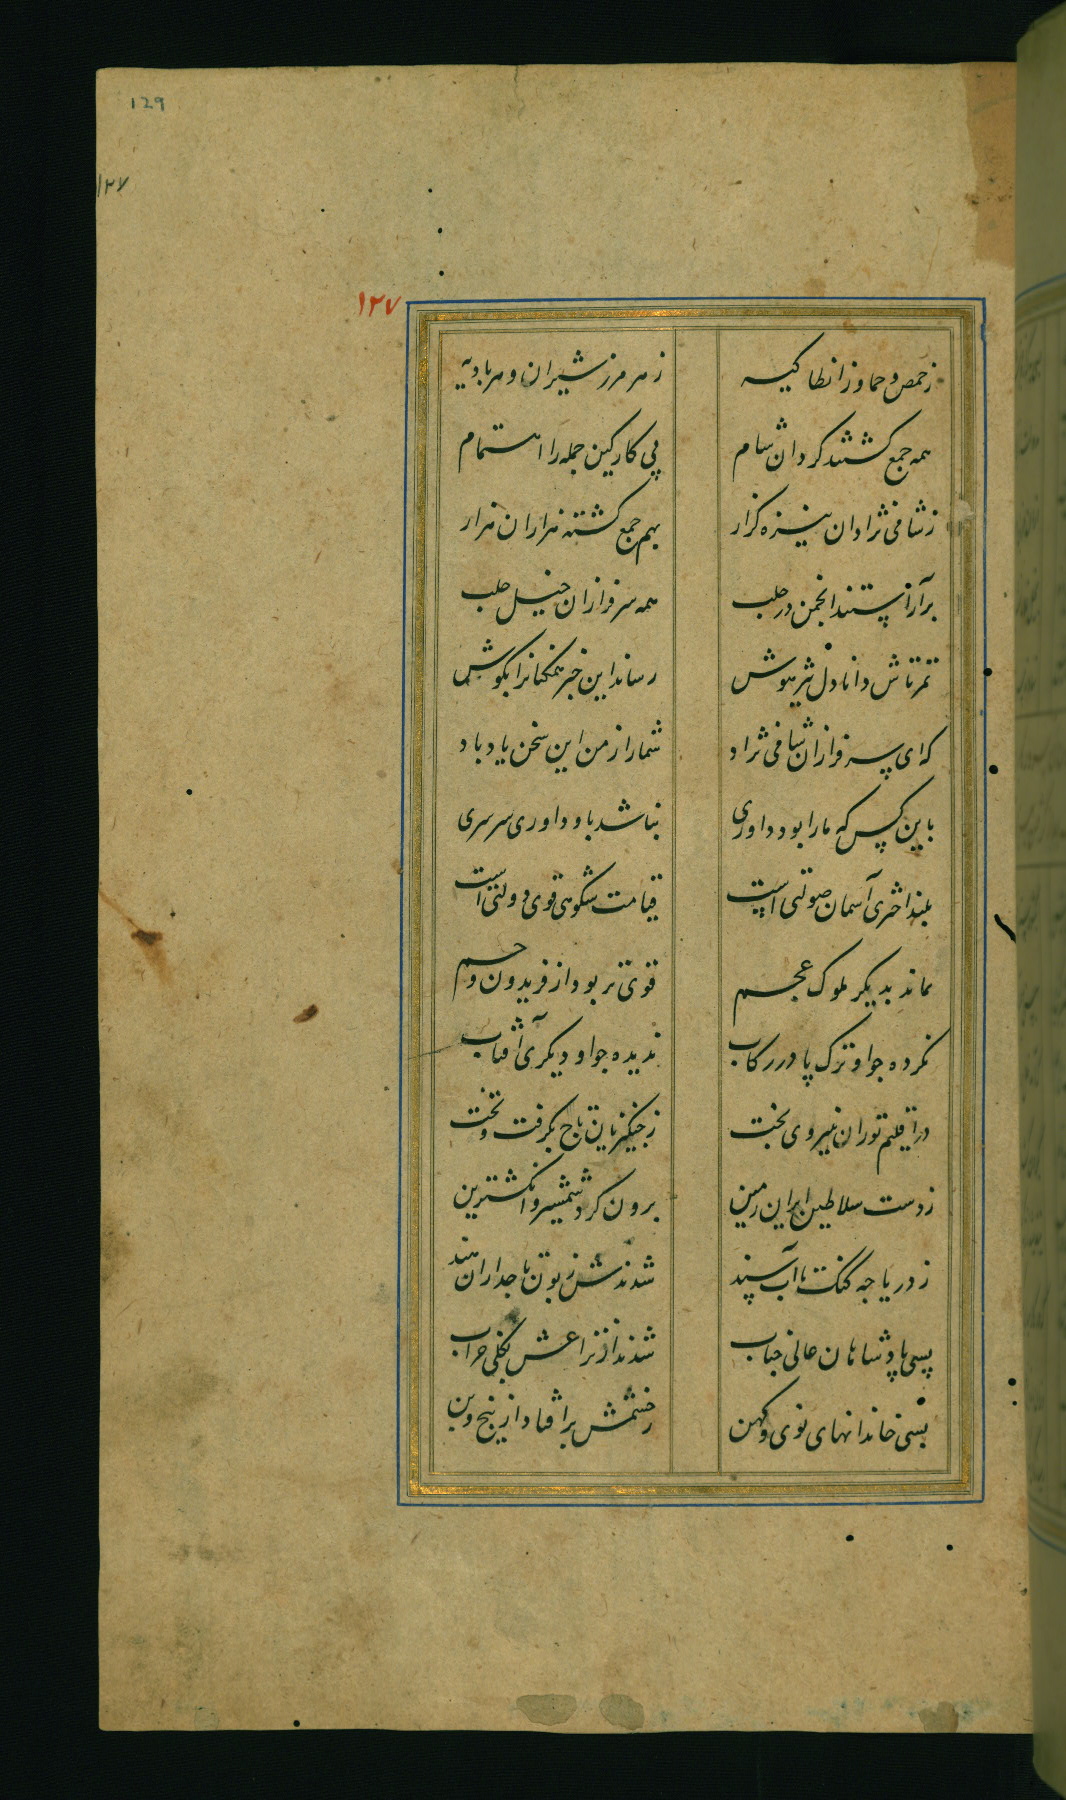 129
۱۲۷
۱۲۷
زحمص و حما و ز انطاکیه ز هر مرز شیران و هر بادیه
همه جمع کشتند کردان شام پی کار کین جمله را اهتمام
ز شامی نژادان نیزه کزار بهم جمع کشته هزاران هزار
برآراستند انجمن در حلب همه سرفرازان خیل حلب
تمرتاش دانادل تیزهوش رساند این خبر همکنانرا بکوش
که ای سرفرازان شامی نژاد شما را ز من این سخن یاد باد
باین کس که ما را بود داوری نباشد باو داوری سرسری
بلند اختری آسمان صولتی است قیامت شکوهی قوی دولتی است
نماند بدیکر ملوک عجم قوی تر بود از فریدون و جم
نکرده چو او ترک پا در رکاب ندیده چو او دیکری آفتاب
در اقلیم توران بنیروی بخت ز چنکیزیان تاج بکرفت و تخت
ز دست سلاطین ایران زمین برون کرد شمشیر و انکشترین
ز دریاچه کنک تا آب سند شدندش زبون تاجداران هند
بسی پادشاهان عالی جناب شدند از نزاعش بکلی خراب
بسی خاندانهای نوی و کهن ز خشمش برافتاد از بیخ و بن